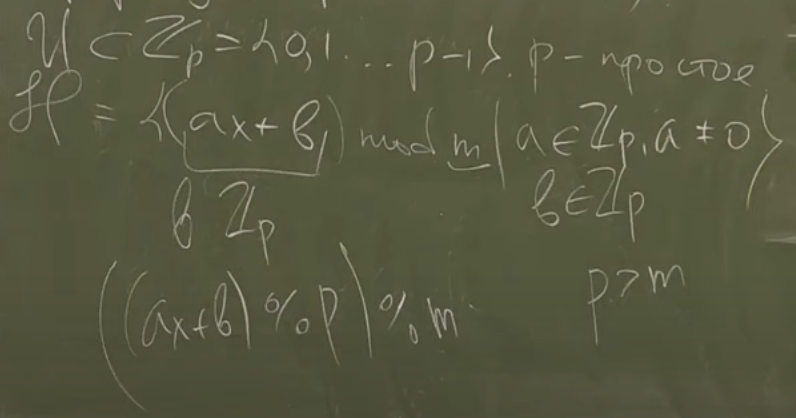 U ⊂ ℤp = {0,1...p-1}. p - простое
ℋ = {(ax+b) mod m | a∈ℤp, a≠0}
в ℤp b∈ℤp
((ax+b)%p)%m p>m